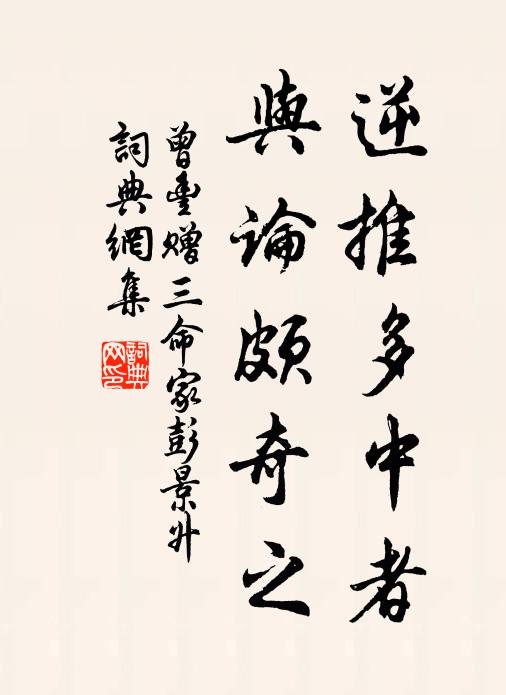 逆推多中者
與論頗奇之
曾豐贈三命家彭景升
詞典網集
詞典網印